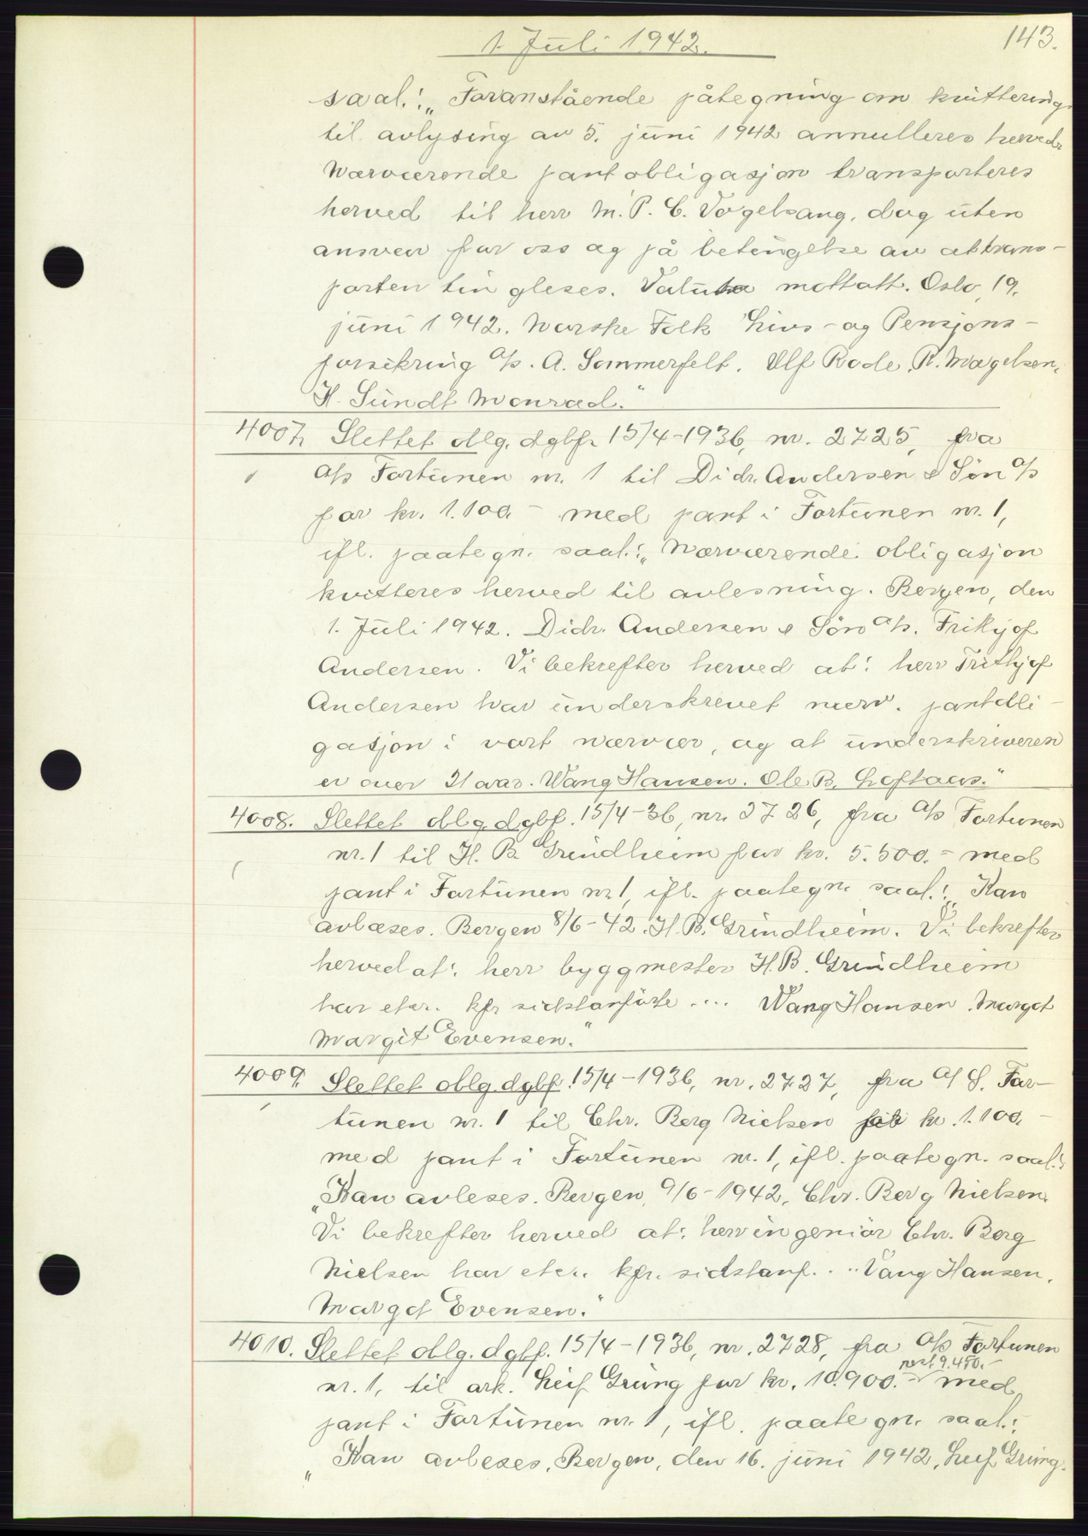 1. Juli 1942.
143.
saal.: „Foranstående påtegning om kvittering
til avlysing av 5. juni 1942 annulleres herved.
Nærværende pantobligasjon transporteres
herved til herr M. P. C. Vogelsang, dog uten
ansvar for oss og på betingelse av at trans-
porten tinglæses. Valuta mottatt. Oslo, 19.
juni 1942. Norske Folk Livs- og Pensjons-
forsikring A/s. A. Sommerfelt. Ulf Bode. R. Magelsen.
H. Sundt Monrad."
4007. Slettet oblg. dgbf. 15/4-1936, nr. 2725, fra
A/s Fortunen nr. 1 til Didr. Andersen & Søn A/s
for kr. 1.100.- med pant i Fortunen nr. 1,
ifl. paategn. saal.: „Nærværende obligasjon
kvitteres herved til avlesning. Bergen, den
1. Juli 1942. Didr. Andersen & Søn A/s. Frithjof
Andersen. Vi bekrefter herved at: herr Frithjof
Andersen har underskrevet nærv. pantobli-
gasjon i vort nærvær, og at underskriveren
er over 21 aar. Wang Hansen. Ole B. Loftaas."
4008. Slettet oblg. dgbf. 15/4-36, nr. 2726, fra A/s Fortunen
nr. 1 til H. B. Grindheim for kr. 5.500.- med
pant i Fortunen nr. 1, ifl. paategn. saal.: „Kan
avlæses. Bergen 8/6-42. H. B. Grindheim. Vi bekrefter
herved at: herr byggmester H. B. Grindheim
har etc.. kfr. sidstanførte .... Wang Hansen. Margot
Margit Evensen."
4009. Slettet oblg. dgbf. 15/4-1936, nr. 2727, fra A/S. For-
tunen nr. 1 til Chr. Berg Nielsen for kr. 1.100.-
med pant i Fortunen nr. 1, ifl. paategn. saal.:
„Kan avleses. Bergen, 9/6-1942. Chr. Berg Nielsen.
Vi bekrefter herved at: herr ingeniør Chr. Berg
Nielsen har etc.. kfr. sidstanf. ... Wang Hansen.
Margot Evensen."
4010. Slettet oblg. dgbf. 15/4-1936, nr. 2728, fra A/s Fortunen
rest 9.450.-
nr. 1, til ark. Leif Grung for kr. 10.900.- med
pant i Fortunen nr. 1, ifl. paategn. saal.:
„Kan avleses. Bergen, den 16. juni 1942. Leif Grung.